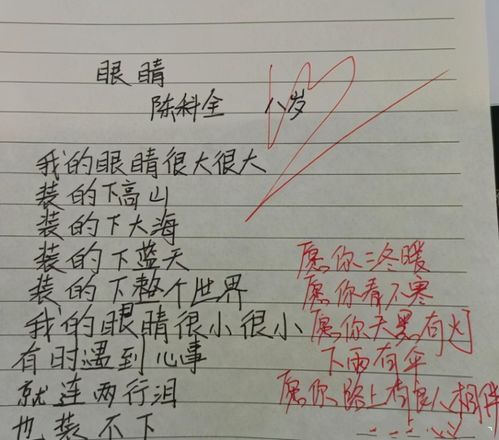 眼睛
陈科全 八岁
我的眼睛很大很大
装的下高山
装的下大海
装的下蓝天
装的下整个世界
我的眼睛很小很小
有时遇到心事
就连两行泪
也装不下
愿你三冬暖
愿你春不寒
愿你天黑有灯
下雨有伞
愿你路上有良人相伴